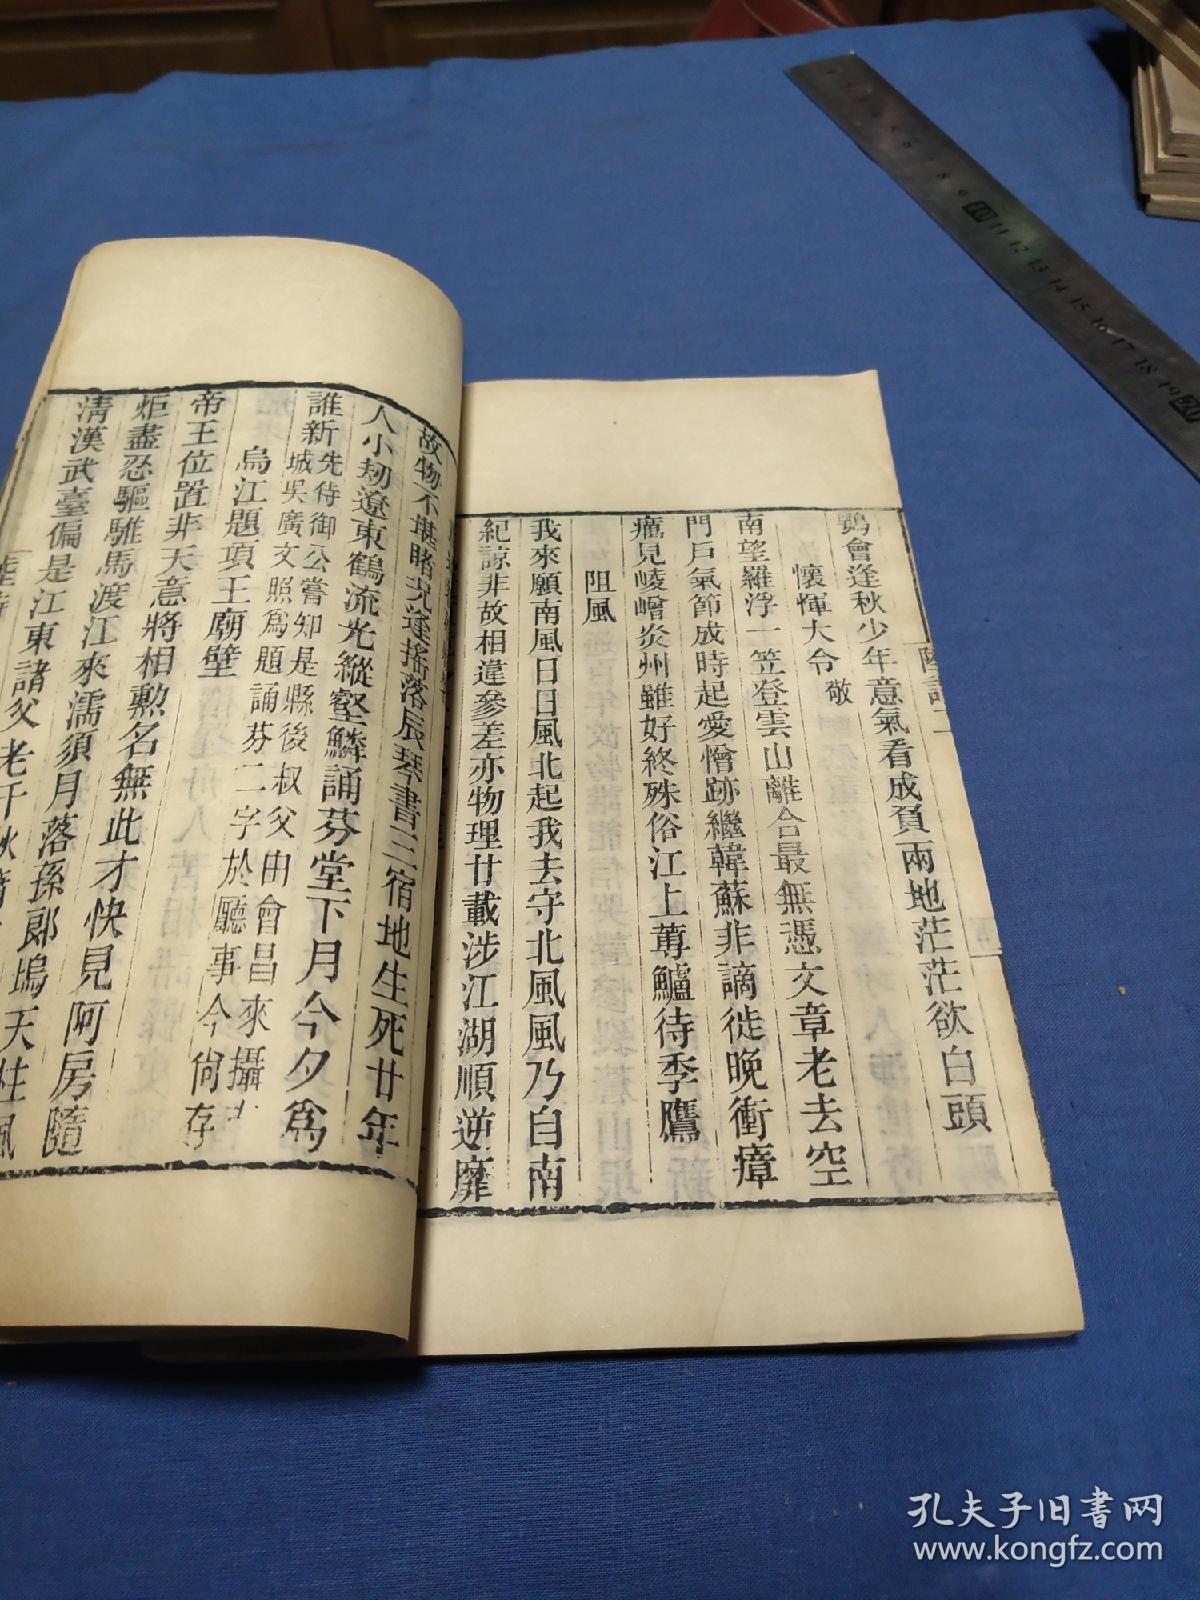 鸚會逢秋少年意氣看成負兩地茫茫欲白頭
懷惲大令敬
南望羅浮一笠登雲山離合最無憑文章老去空
門戶氣節成時起愛憎跡繼韓蘇非謫徙晚衝瘴
癘見崚嶒炎州雖好終殊俗江上蓴鱸待季鷹
阻風
我來願南風日日風北起我去守北風風乃自南
紀諒非故相違參差亦物理廿載涉江湖順逆靡
故物不堪睹況逢搖落辰琴書三宿地生死廿年
人小刼遼東鶴流光縱壑鱗誦芬堂下月今夕為
誰新先侍御公嘗知是縣後叔父由會昌來攝
城吳廣文照為題誦芬二字於廳事今尙存
烏江題項王廟壁
帝王位置非天意將相勳名無此才快見阿房隨
炬盡忍驅騅馬渡江來濡須月落孫郎塢天柱風
淸漢武臺偏是江東諸父老千秋
10 11 12 13 14 15 16 17 18 19 20
孔夫子旧书网
www.kongfz.com